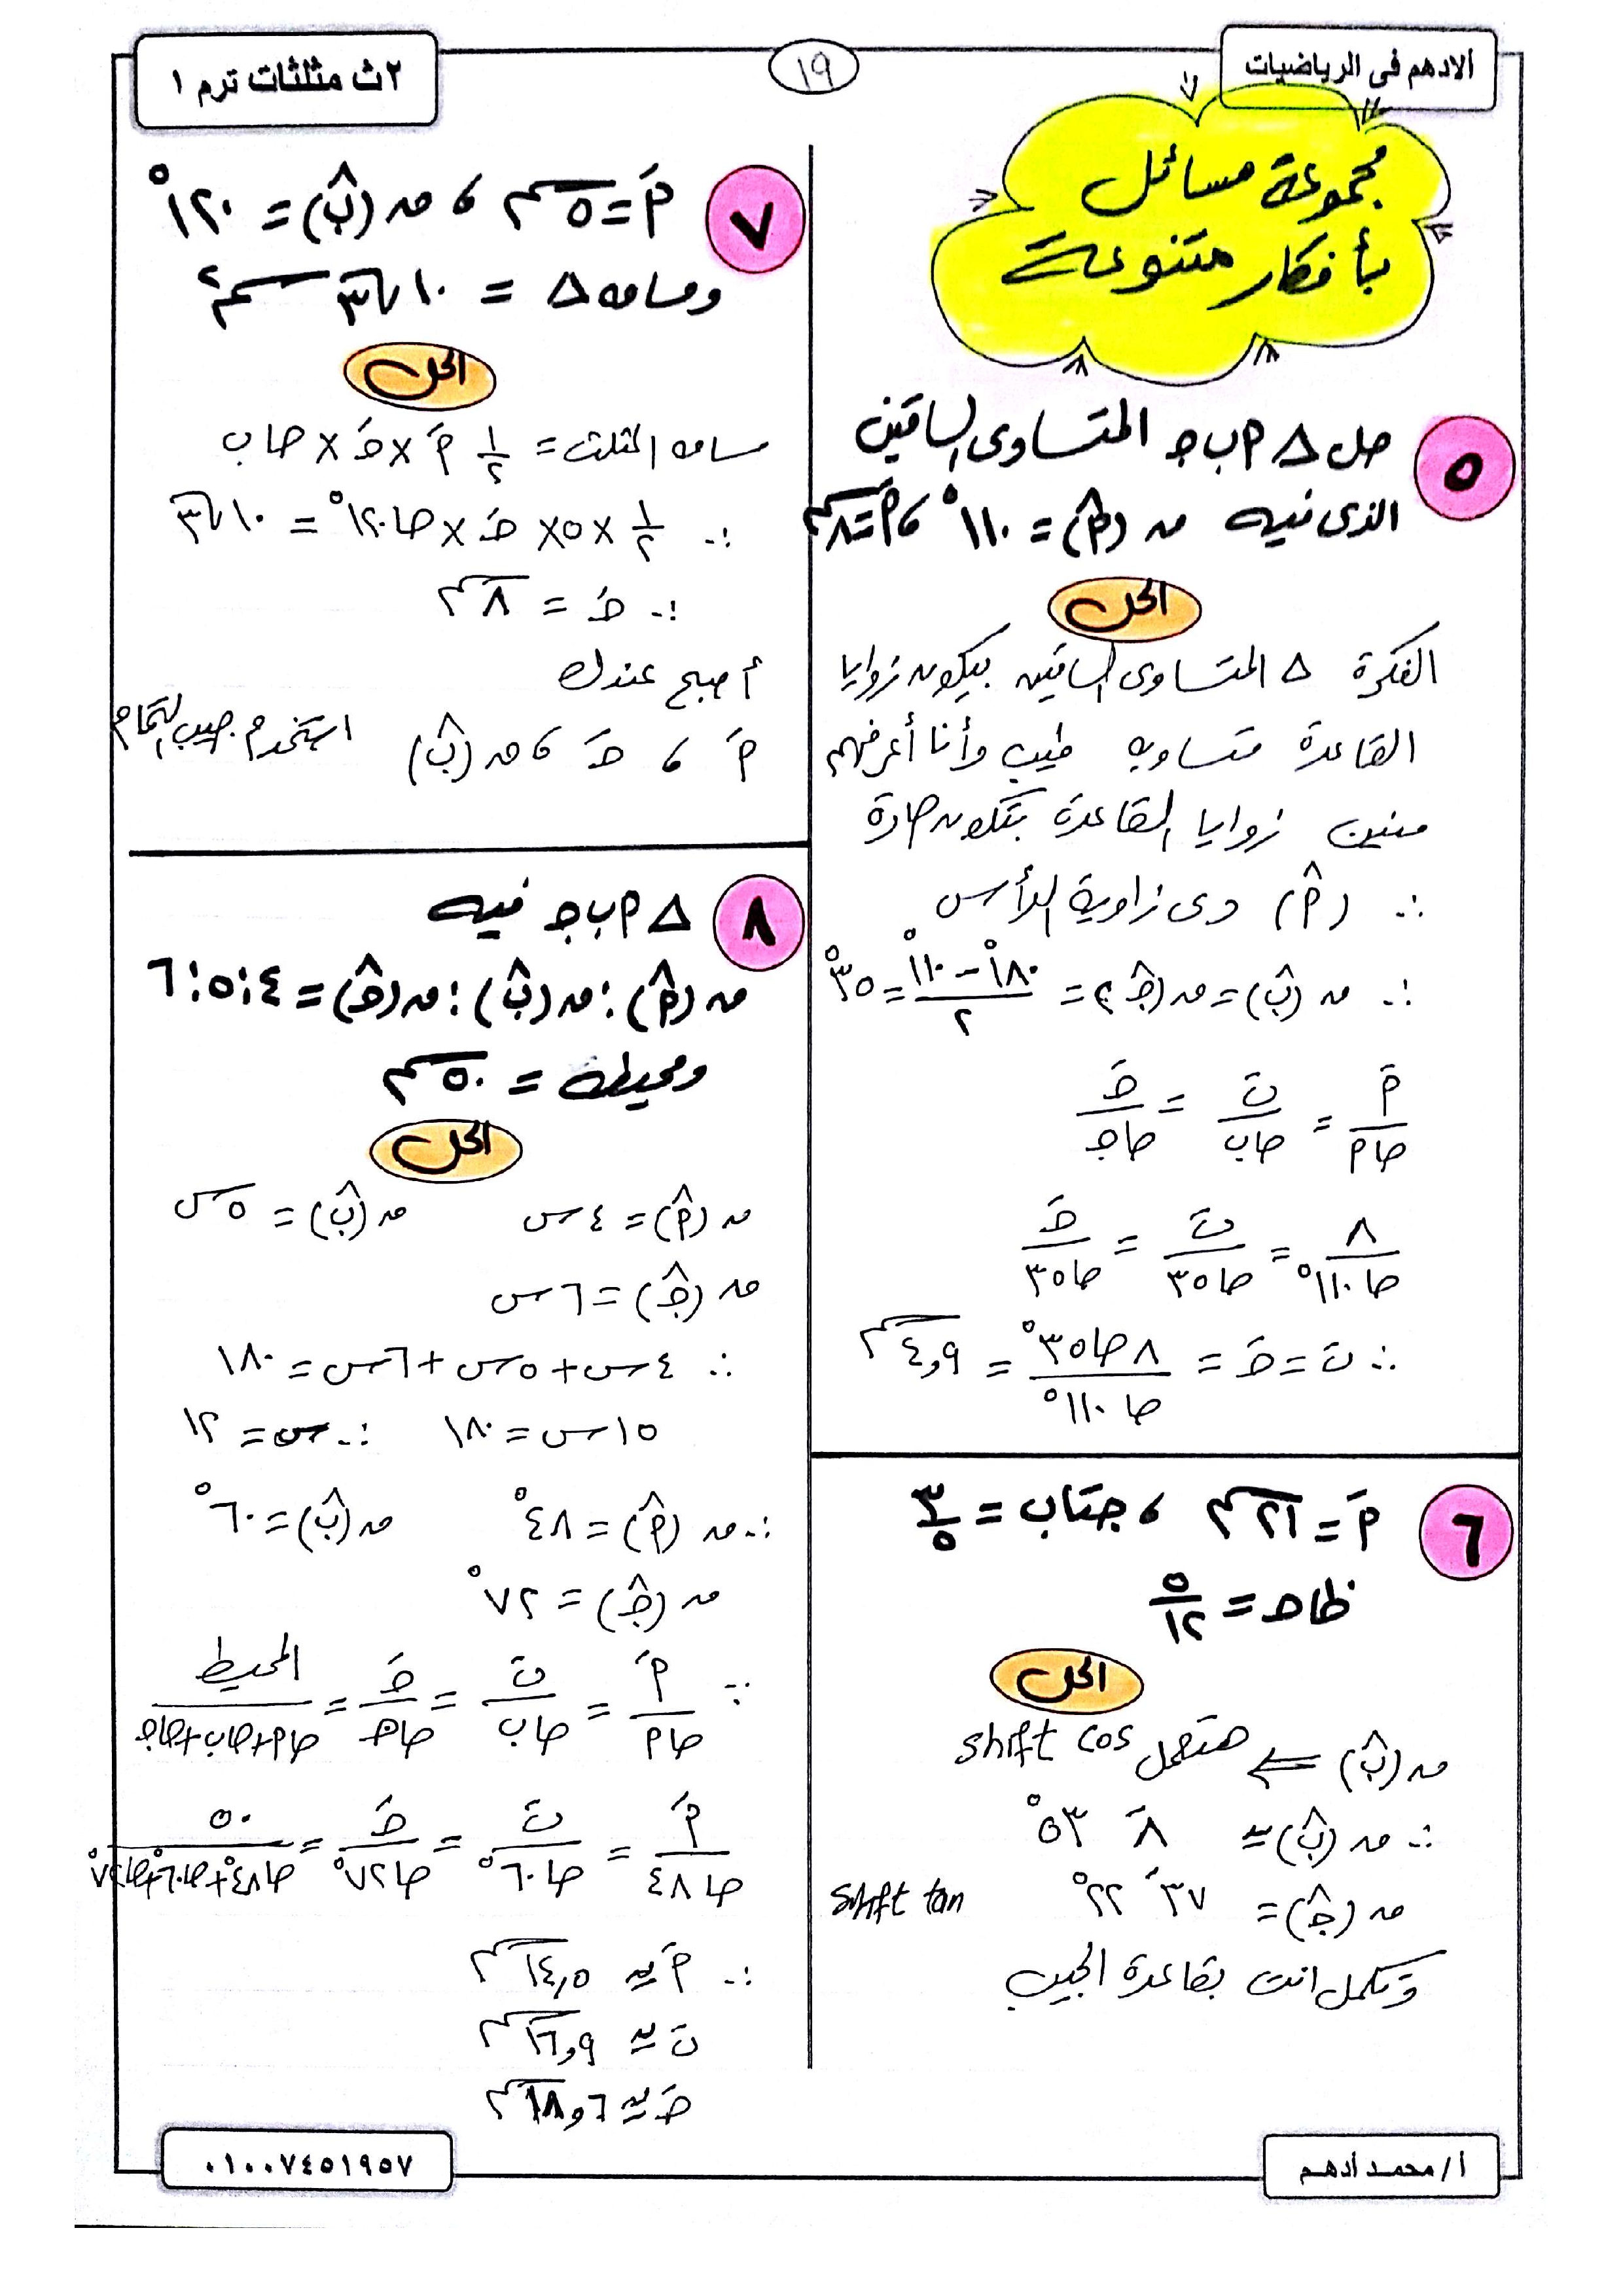 الادهم فى الرياضيات
١٩
٢ث مثلثات ترم ١
مجموعة مسائل
بأفكار متنوعة
٥ حل △ م ب ج المتساوى الساقين
الذى فيه ن (م̂) = ١١٠° ، مَ = ٨ سم
الحل
الفكرة △ المتساوى الساقين بيكون زوايا
القاعدة متساوية طيب وأنا أعرفهم
منين زوايا القاعدة بتكون حادة
∴ (م̂) دى زاوية الرأس
∴ ن (ب̂) = ن (ج̂) = (١٨٠° − ١١٠°)/٢ = ٣٥°
مَ/حام = بَ/حاب = جَ/حاج
٨/حا١١٠° = بَ/حا٣٥ = جَ/حا٣٥
∴ بَ = جَ = ٨حا٣٥°/حا١١٠° = ٤,٩ سم
٦ مَ = ٢١ سم ، جتاب = ٣/٥
ظاج = ٥/١٢
الحل
ن (ب̂) ⇐ هنعمل shift cos
∴ ن (ب̂) ≃ ٨َ ٥٣°
ن (ج̂) = ٣٧َ ٢٢° shift tan
وتكمل انت بقاعدة الجيب
٧ مَ = ٥ سم ، ن (ب̂) = ١٢٠°
ومساحة △ = ١٠√٣ سم٢
الحل
مساحة المثلث = ١/٢ مَ × جَ × حاب
∴ ١/٢ × ٥ × جَ × حا١٢٠° = ١٠√٣
∴ جَ = ٨ سم
أصبح عندك
مَ ، جَ ، ن (ب̂) استخدم جيب التمام
٨ △ م ب ج فيه
ن (م̂) : ن (ب̂) : ن (ج̂) = ٤:٥:٦
ومحيطه = ٥٠ سم
الحل
ن (م̂) = ٤س ن (ب̂) = ٥س
ن (ج̂) = ٦س
∴ ٤س + ٥س + ٦س = ١٨٠
١٥س = ١٨٠ ∴ س = ١٢
∴ ن (م̂) = ٤٨° ن (ب̂) = ٦٠°
ن (ج̂) = ٧٢°
∵ مَ/حام = بَ/حاب = جَ/حاج = المحيط/(حام+حاب+حاج)
مَ/حا٤٨ = بَ/حا٦٠° = جَ/حا٧٢° = ٥٠/(حا٤٨°+حا٦٠°+حا٧٢°)
∴ مَ ≃ ١٤,٥ سم
بَ ≃ ١٦,٩ سم
جَ ≃ ١٨,٦ سم
أ/محمد أدهم
٠١٠٠٧٤٥١٩٥٧